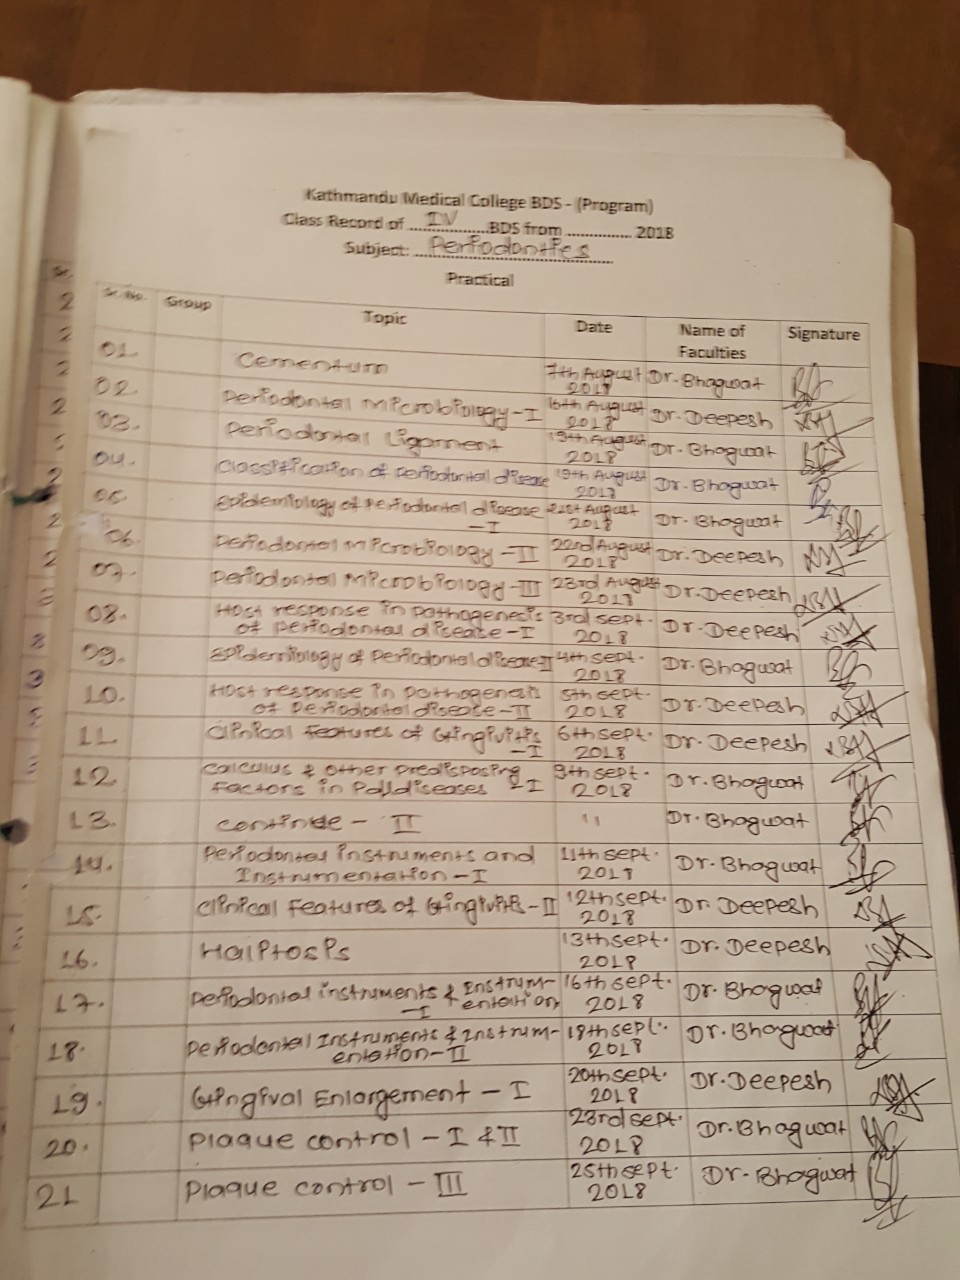 Kathmandu Medical College BDS - (Program)
Class Record of ....IV....BDS from ............... 2018
Subject: Periodontics
Practical
Sr. No. Group Topic Date Name of Faculties Signature
01. Cementum 7th August 2018 Dr. Bhagwat
02. Periodontal Microbiology-I 16th August 2018 Dr. Deepesh
03. Periodontal Ligament 19th August 2018 Dr. Bhagwat
04. Classification of periodontal disease 19th August 2018 Dr. Bhagwat
05. Epidemiology of Periodontal disease -I 21st August 2018 Dr. Bhagwat
06. Periodontal Microbiology-II 22nd August 2018 Dr. Deepesh
07. Periodontal Microbiology-III 23rd August 2018 Dr. Deepesh
08. Host response in pathogenesis of periodontal disease-I 3rd sept. 2018 Dr. Deepesh
09. Epidemiology of Periodontal disease-II 4th sept. 2018 Dr. Bhagwat
10. Host response in pathogenesis of periodontal disease-II 5th sept. 2018 Dr. Deepesh
11 Clinical features of Gingivitis -I 6th sept. 2018 Dr. Deepesh
12. Calculus & other predisposing factors in Pdldiseases -I 9th sept. 2018 Dr. Bhagwat
13. continue - II " Dr. Bhagwat
14. Periodontal instruments and Instrumentation-I 11th sept. 2018 Dr. Bhagwat
15. Clinical features of Gingivitis-II 12th sept. 2018 Dr. Deepesh
16. Halitosis 13th sept. 2018 Dr. Deepesh
17. Periodontal instruments & Instrum-entation -I 16th sept. 2018 Dr. Bhagwat
18. Periodontal Instruments & Instrum-entation-II 18th sept. 2018 Dr. Bhagwat
19. Gingival Enlargement - I 20th sept. 2018 Dr. Deepesh
20. Plaque control - I & II 23rd sept. 2018 Dr. Bhagwat
21 Plaque control - III 25th sept. 2018 Dr. Bhagwat